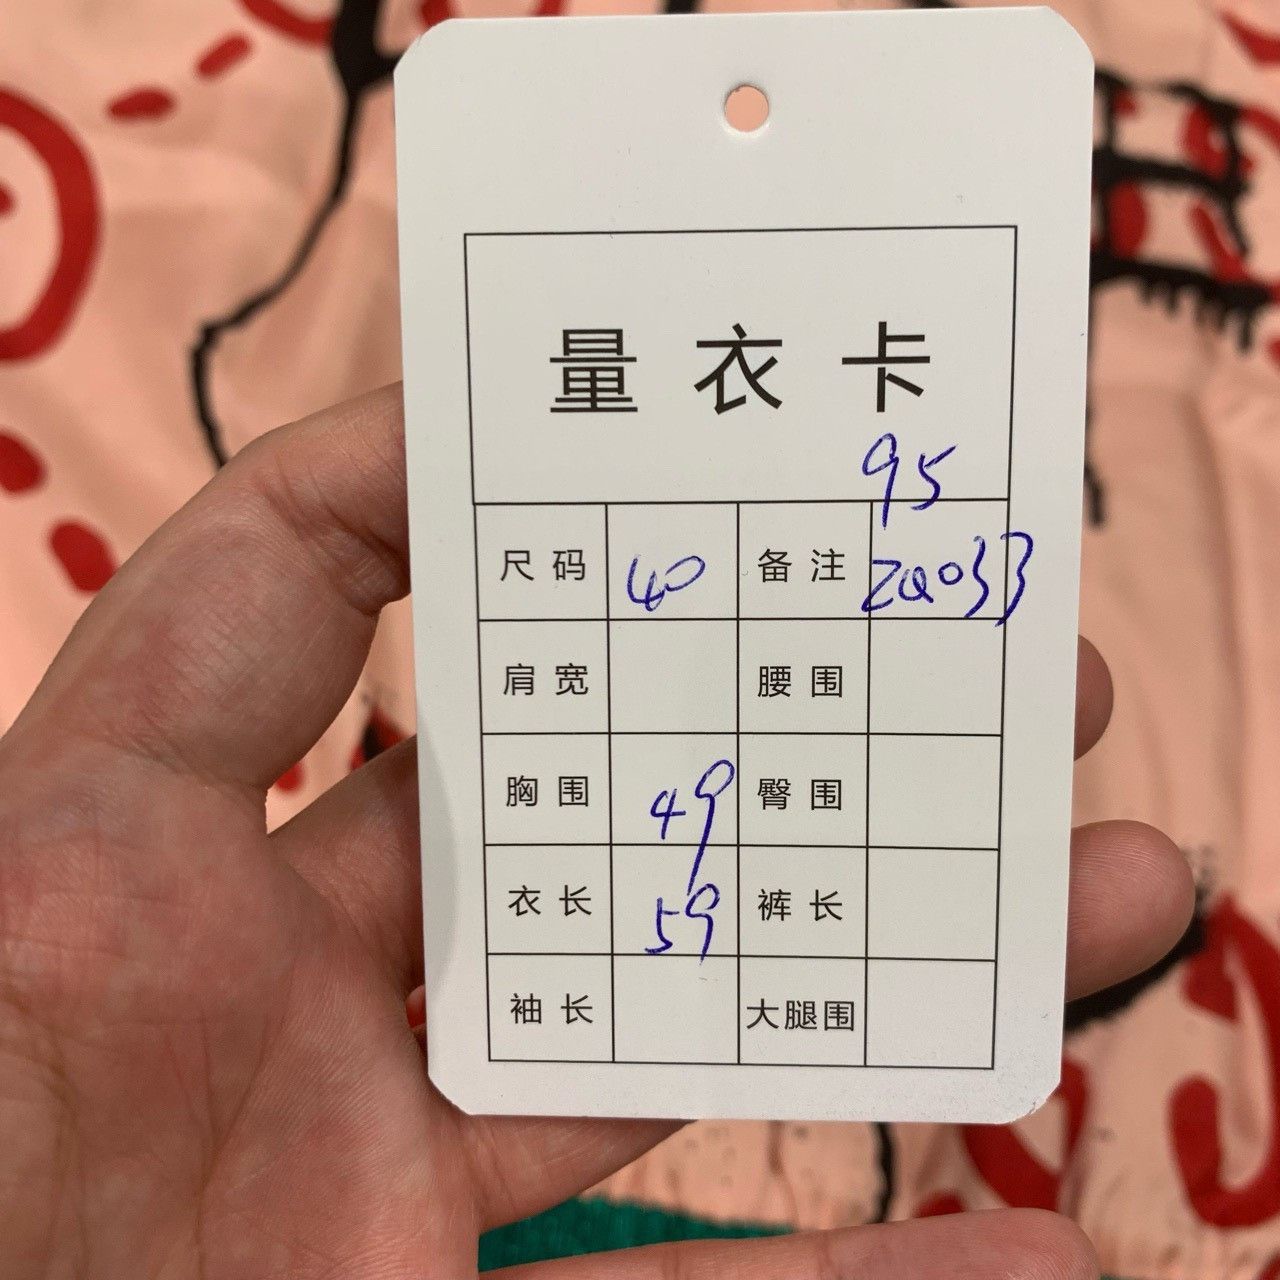 量衣卡
95
尺码 40 备注 ZQ033
肩宽 腰围
胸围 49 臀围
衣长 59 裤长
袖长 大腿围